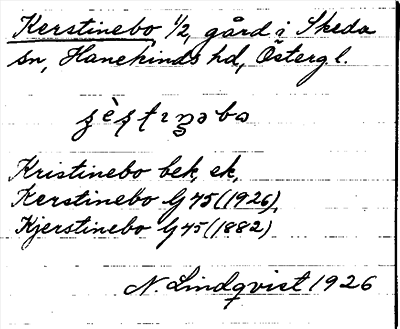 Kerstinebo ½, gård i Skeda
sn, Hanekinds hd, Östergl.
Kristinebo bek, ek,
Kerstinebo G 45 (1926),
Kjerstinebo G 45 (1882)
N. Lindqvist 1926